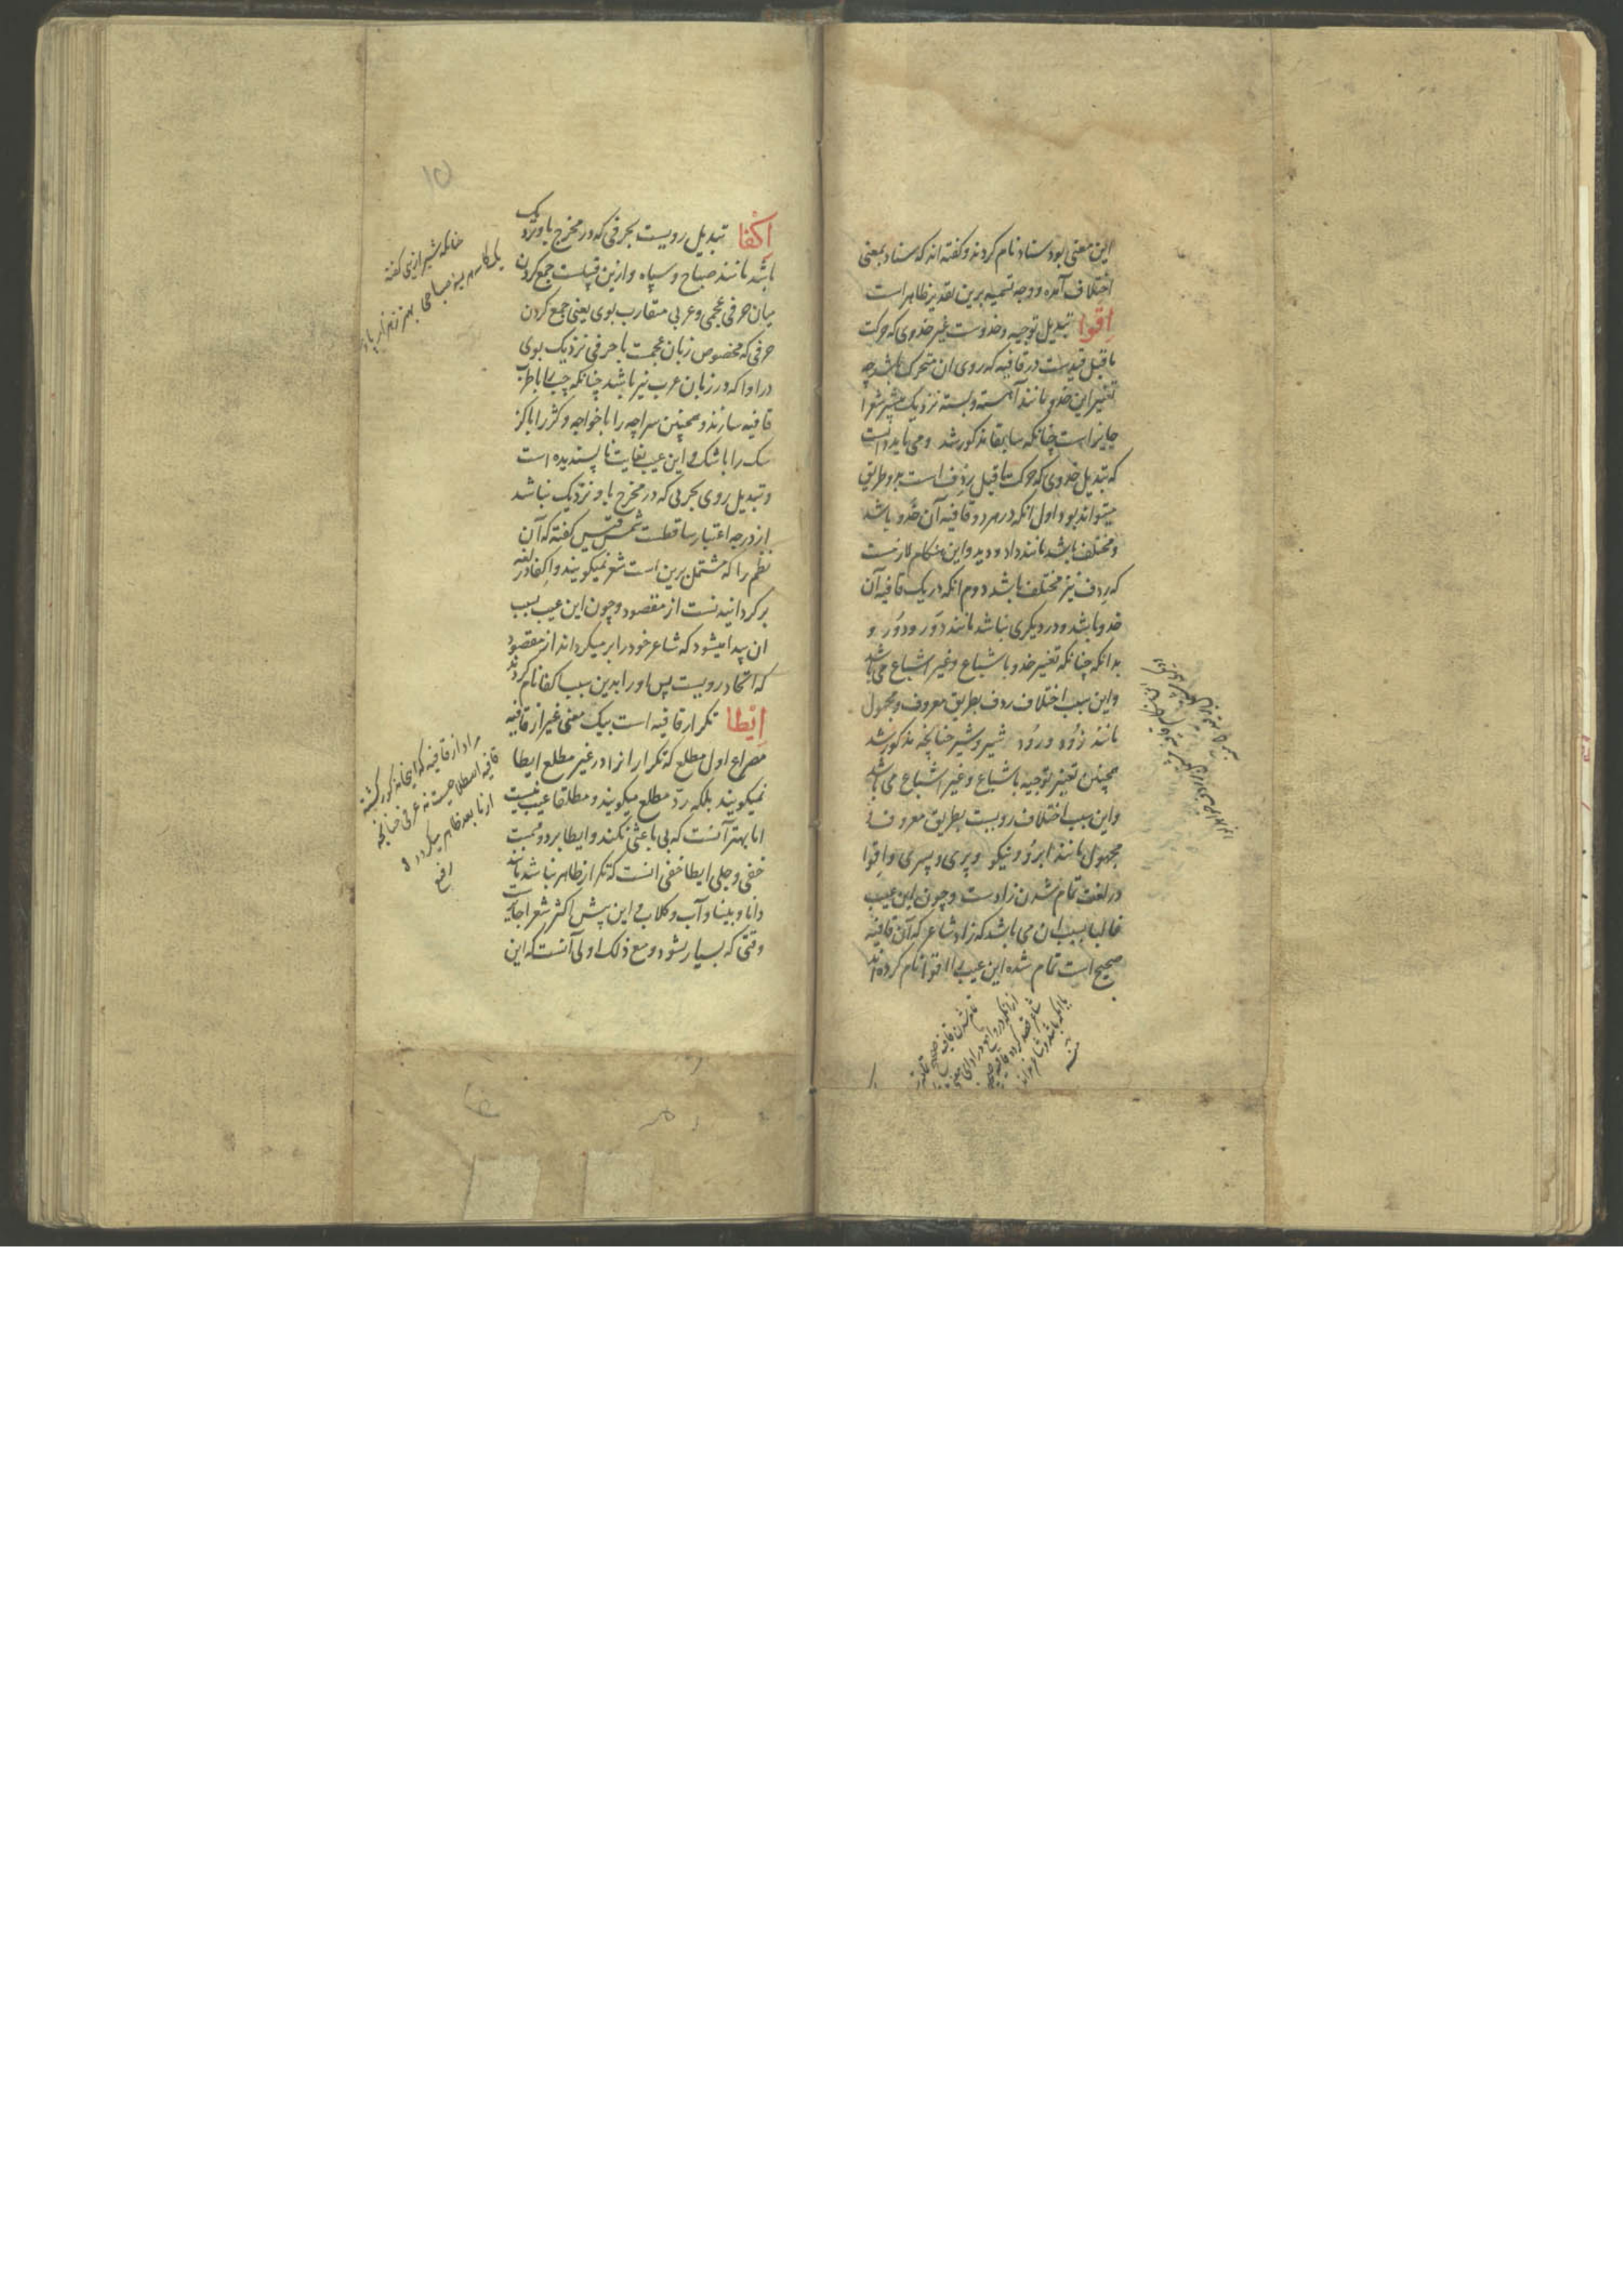 این معنی بود سناد نام کردند و گفته اند که سناد بمعنی
اختلاف آمده و وجه تسمیه برین تقدیر ظاهر است
اِقوا تبدیل توجیه و حذوست غیر حذوی که حرکت
ماقبل قیدست در قافیه که روی آن متحرک باشد چه
تغییر این حذو مانند آهسته و بسته نزدیک بیشتر شعرا
جایز است چنانکه سابقا مذکور شد و می باید دانست
که تبدیل حذوی که حرکت ماقبل رِدف است بدو طریق
میتواند بود اول آنکه در هر دو قافیه آن حَذو باشد
و مختلف باشد مانند داد و دید و این هنگام لازمست
که رِدف نیز مختلف باشد دوم آنکه در یک قافیه آن
حذو باشد و در دیگری نباشد مانند دَور و دُور و
بدانکه چنانکه تغییر حذو باشباع و غیر اشباع می باشد
و این سبب اختلاف ردف بطریق معروف و مجهول
مانند زُود و رود شیر و شیر چنانچه مذکور شد
همچنین تغییر توجیه باشباع و غیر اشباع می باشد
و این سبب اختلاف رویست بطریق معروف و
مجهول مانند ابرُو و نیکو و پری و پسری و اِقوا
در لغت تمام شدن زادست و چون این عیب
غالبا بسبب آن می باشد که زاد شاعر که آن قافیهٔ
صحیح است تمام شده این عیب را اقوا نام کرده اند
اِکفا تبدیل رویست بحرفی که در مخرج باو نزدیک
باشد مانند صباح و سپاه و ازین قبیلست جمع کردن
میان حرفی عجمی و عربی متقارب بوی یعنی جمع کردن
حرفی که مخصوص زبان عجمست با حرفی نزدیک بوی
در ادا که در زبان عرب نیز باشد چنانکه چپ را با طرب
قافیه سازند و همچنین سراچه را با خواجه و کژ را با کز
سک را با شک و این عیب بغایت ناپسندیده است
و تبدیل روی بحرفی که در مخرج باو نزدیک نباشد
از درجه اعتبار ساقطست شمس قیس گفته که آن
نظم را که مشتمل برین است شعر نمیگویند و اکفا در لغة
برگردانیدنست از مقصود و چون این عیب بسبب
آن پیدا میشود که شاعر خود را بر میگرداند از مقصود
که اتحاد رویست پس او را بدین سبب اکفا نام کردند
اِیْطا تکرار قافیه است بیک معنی غیر از قافیه
مصراع اول مطلع که تکرار آنرا در غیر مطلع ایطا
نمیگویند بلکه ردّ مطلع میگویند و مطلقا عیب نیست
اما بهتر آنست که بی باعثی نکنند و ایطا بر دو قسمست
خفی و جلی ایطا خفی آنست که تکرار ظاهر نباشد مانند
دانا و بینا و آب و گلاب و این پیش اکثر شعرا جایزست
وقتی که بسیار نشود و مع ذلک اولی آنست که این
چنانکه شیرازی گفته
مراد از قافیه که اینجا مذکور گشته
قافیه اصطلاحیست نه عرفی چنانچه
از ما بعد ظاهر میگردد